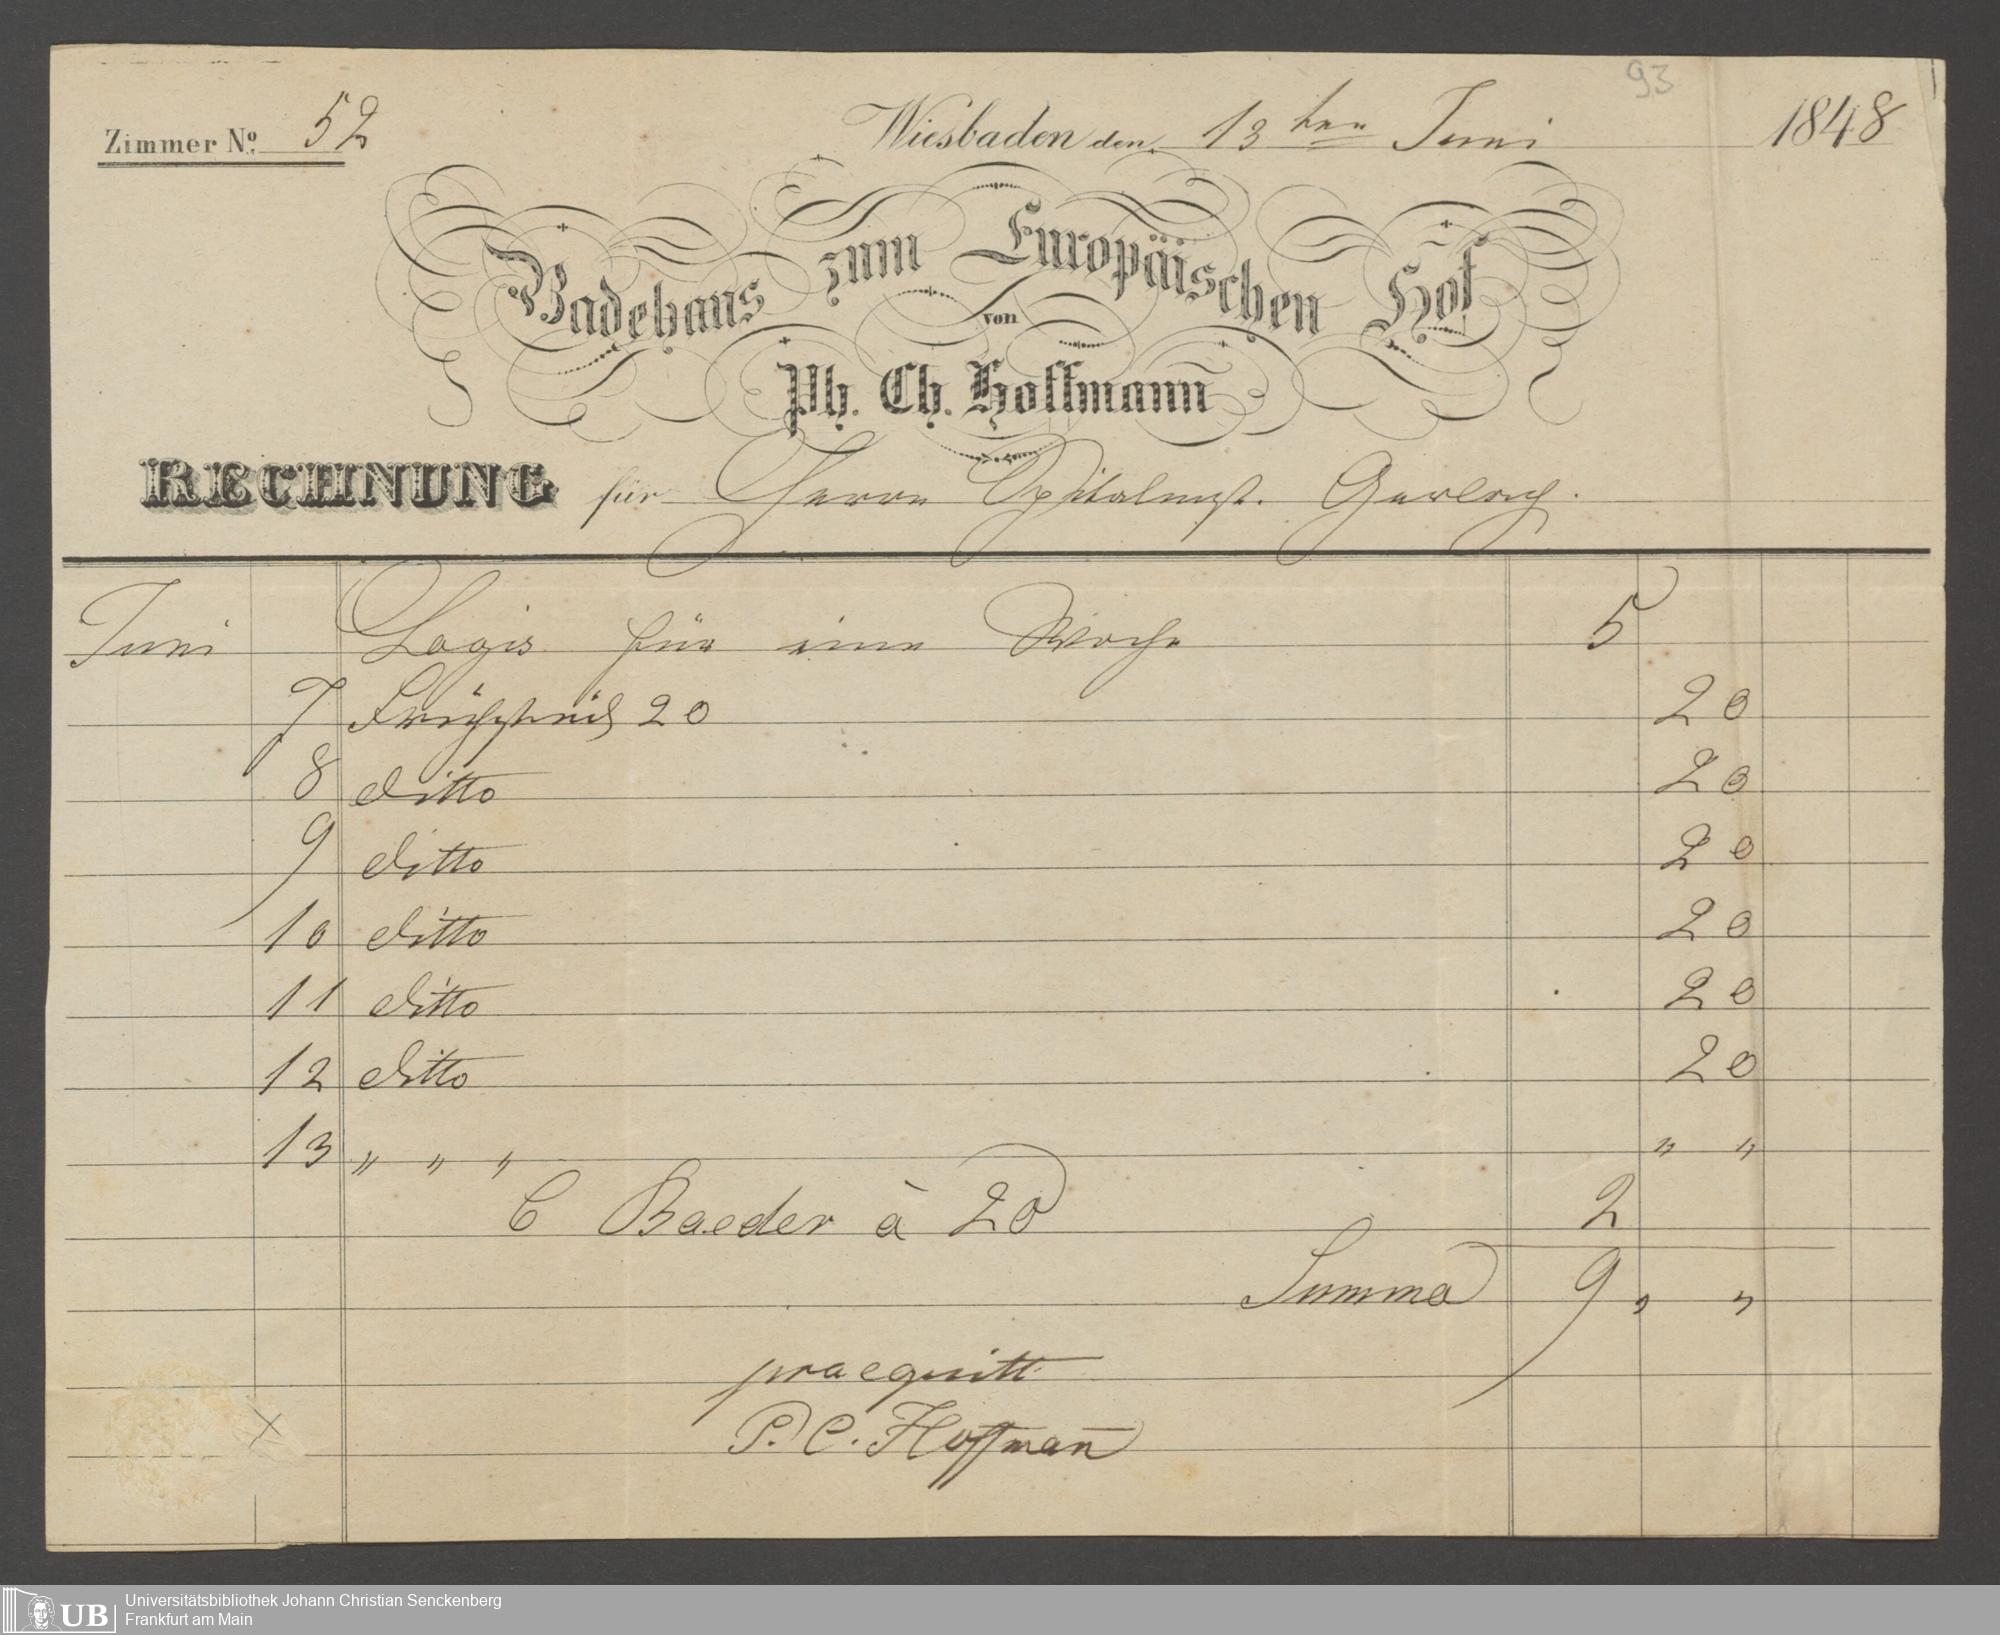 93
Zimmer No. 52
Wiesbaden den 13ten Juni 1848
Badehaus zum Europäischen Hof
von
Ph. Ch. Hoffmann
RECHNUNG für Herrn Gerlach.
Juni Logis für eine Woche 5
7 Frühstück 20 20
8 ditto 20
9 ditto 20
10 ditto 20
11 ditto 20
12 ditto 20
13 „ „ „ „ „
6 Baeder à 20 2
Summa 9 „ „
praequitt
P. C. Hoffmañ
UB Universitätsbibliothek Johann Christian Senckenberg
Frankfurt am Main